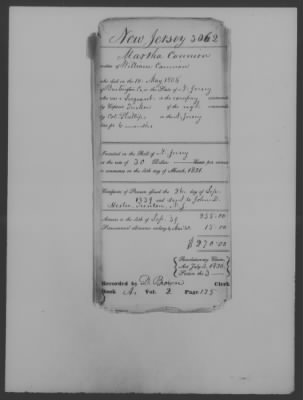 New Jersey 3062
Martha Cannon
widow of William Cannon
who died on the 10 May 1808
of Burlington Co. in the State of N. Jersey
who was a Sergeant in the company commanded
by Captain of the regt. commanded
by Col. Phillips in the N. Jersey
line for 6 months
Inscribed on the Roll of N. Jersey
at the rate of 30 Dollars Cents per annum
to commence on the 4th day of March, 1831.
Certificate of Pension issued the 26 day of Sep.
1839 and sent to John D.
Trenton, N. J.
Arrears to the 4th of Sep. 39 255.00
Semi-annual allowance ending 15.00
$270.00
Revolutionary Claim,
Act July 4, 1836,
Section the 3
Recorded by D. Brown Clerk
Book A. Vol. 2 Page 175